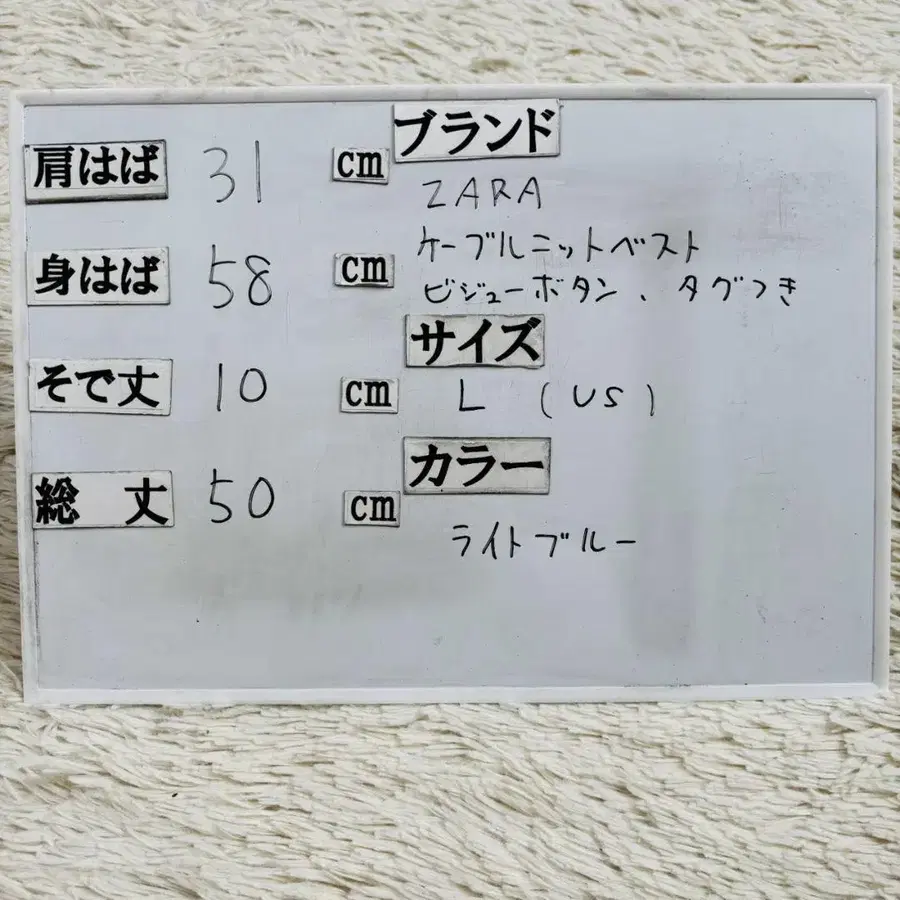 肩はば 31 cm
身はば 58 cm
そで丈 10 cm
総 丈 50 cm
ブランド
ZARA
ケーブルニットベスト
ビジューボタン、タグつき
サイズ
L (US)
カラー
ライトブルー